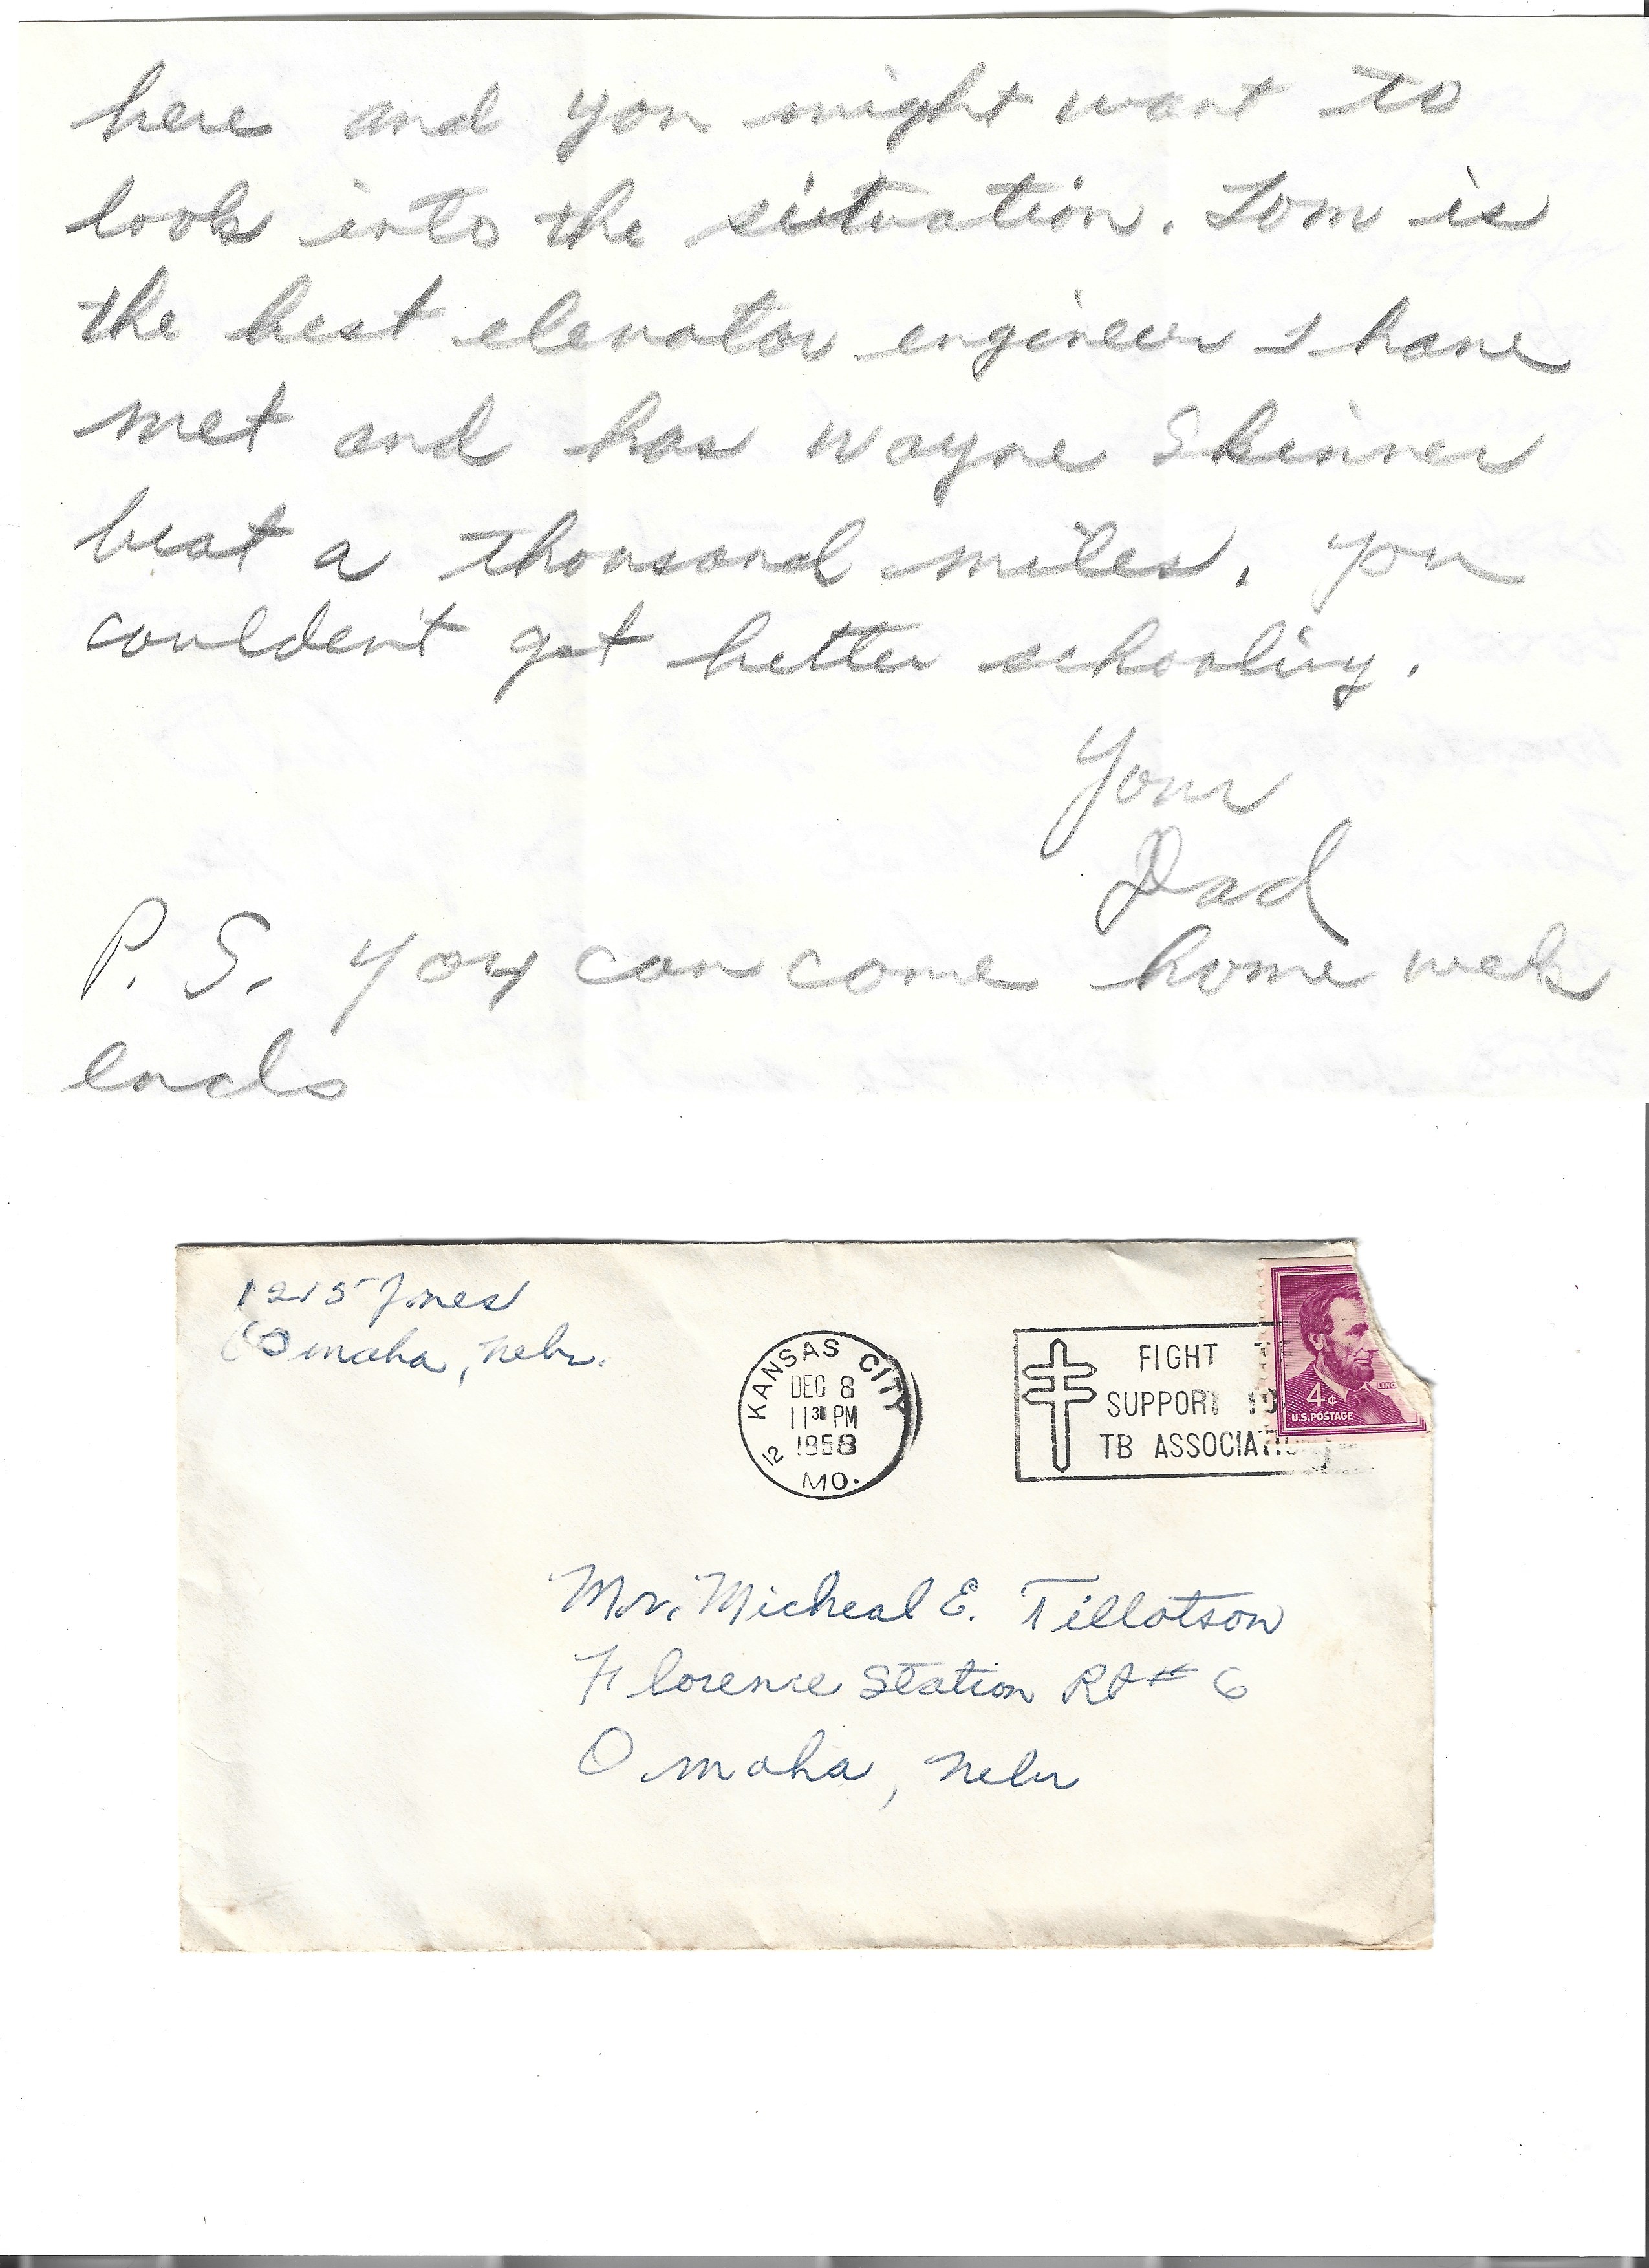 here and you might want to
look into the situation. Tom is
the best elevator engineer I have
met and has Wayne Skinner
beat a thousand miles. You
coulden't get better schooling.
Your
Dad
P. S. You can come home week
ends
1215 Jones
Omaha, Nebr.
KANSAS CITY
DEC 8
11 30 PM
1958
12 MO.
FIGHT
SUPPORT
TB ASSOCIATI
4¢
U.S. POSTAGE
LINC
Mr. Micheal E. Tillotson
Florence Station R # 6
Omaha, Nebr